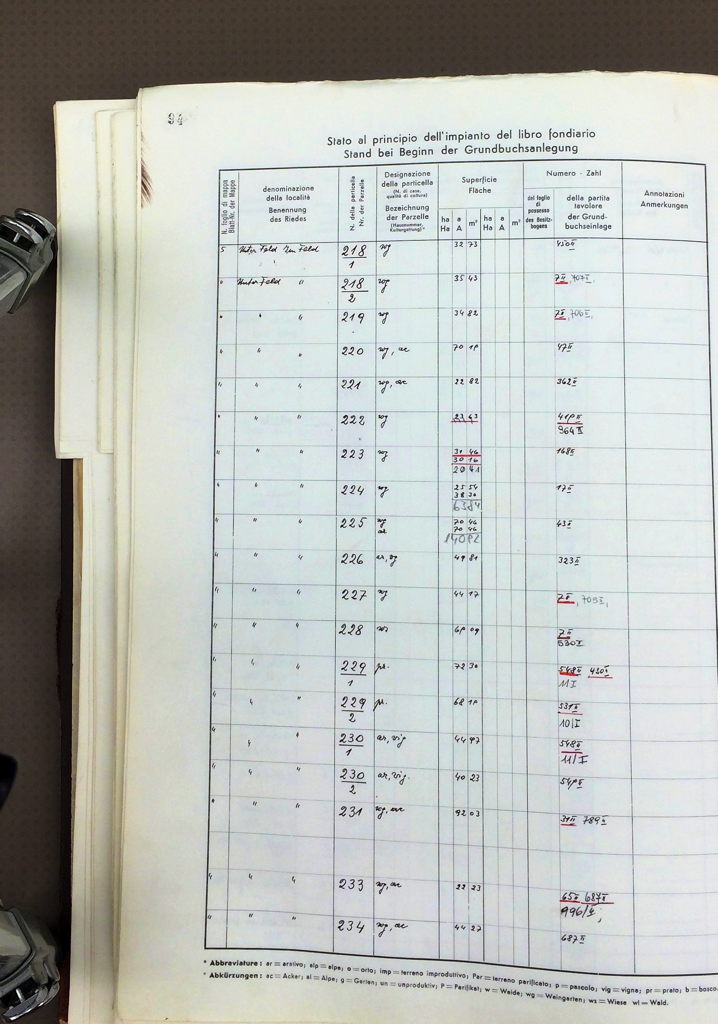 94
Stato al principio dell'impianto del libro fondiario
Stand bei Beginn der Grundbuchsanlegung
N. foglio di mappa
Blatt-Nr. der Mappe
denominazione
della località
Benennung
des Riedes
N. della particella
Nr. der Parzelle
Designazione
della particella
(N. di casa,
qualità di coltura)
Bezeichnung
der Parzelle
(Hausnummer,
Kulturgattung)*
Superficie
Fläche
ha a m² ha a m²
Ha A Ha A
Numero - Zahl
del foglio di
possesso
des Besitz-
bogens
della partita
tavolare
der Grund-
buchseinlage
Annotazioni
Anmerkungen
5 Unter Feld Im Feld 218/1 wg 32 73 450 II
" Unter Feld " 218/2 wg 35 43 7 II, 707 I,
" " " 219 wg 34 82 7 II,
" " 220 wg, ac 47 II
" " " 221 wg, ac 22 82 362 II
" " " 222 wg 23 43
964 II
" " " 223 wg 31 46 168 II
30 16
20 41
" " " 224 wg 25 54 17 II
38 30
6384
" " " 225 wg 70 46 43 II
ac 70 46
14092
" " " 226 ar, vg 49 81 323 II
" " " 227 wg 44 17 7 II,
" " " 228 09 7 II
530 I
" " " 229/1 pr. 72 30 548 II 430 II
11 I
" " " 229/2 pr. 531 II
10/I
" " " 230/1 ar, vig 44 97 548 II
11/I
" " " 230/2 ar, vig. 40 23
" " " 231 wg, ac 92 03 31 II 789 II
" " " 233 wg, ac 22 23 65 II 687 II
996/II,
" " " 234 wg, ac 44 27 687 II
* Abbreviature: ar = arativo, alp = alpe; o = orto; imp = terreno improduttivo; Par = terreno parificato; p = pascolo; vig = vigna; pr = prato; b = bosco.
* Abkürzungen: ac = Acker; al = Alpe; g = Garten; un = unproduktiv; P = Parifikat; w = Weide; wg = Weingarten; ws = Wiese wl = Wald.